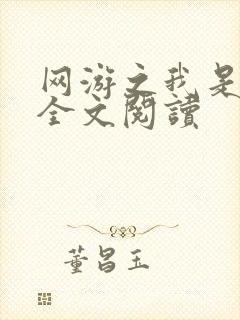 网游之我是
全文閱讀
董昌玉